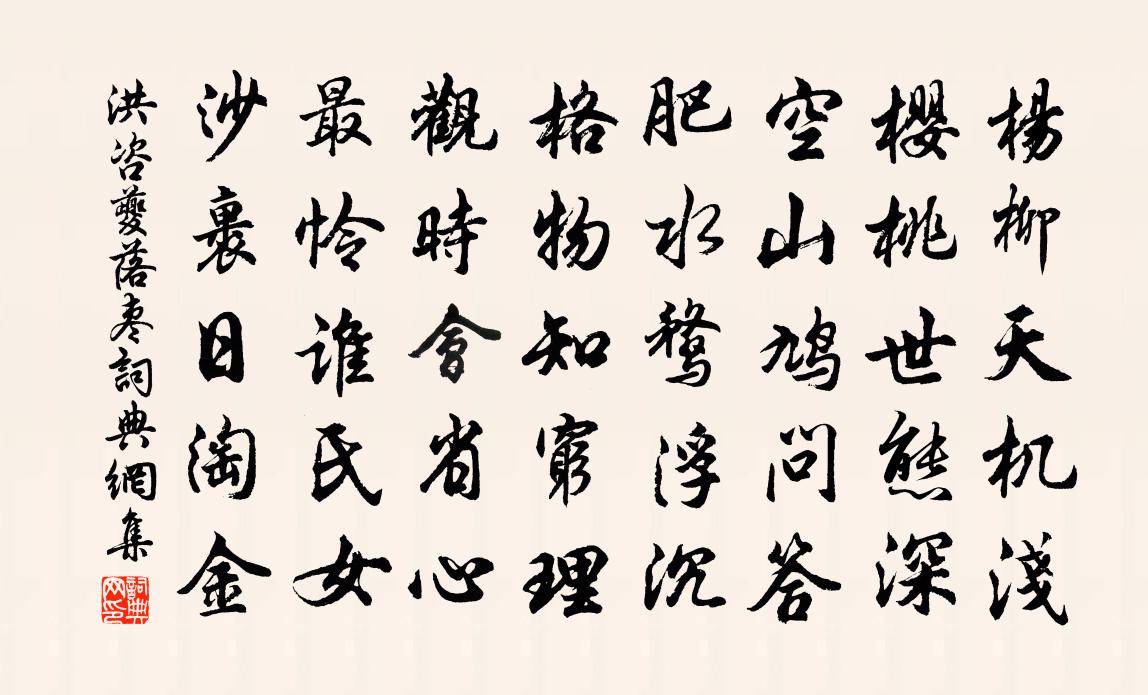 楊柳天机淺
櫻桃世態深
空山鳩問答
肥水鶩浮沉
格物知窮理
觀時會省心
最怜誰氏女
沙裹日淘金
洪咨夔落枣詞典網集
詞典網印